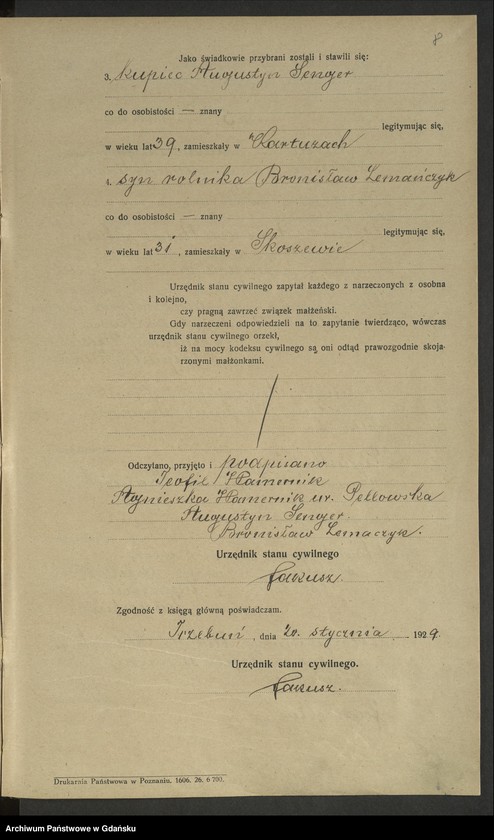 8
Jako świadkowie przybrani zostali i stawili się:
3. kupiec Augustyn Senger
co do osobistości — znany
legitymując się,
w wieku lat 39, zamieszkały w Kartuzach
4. syn rolnika Bronisław Lemańczyk
co do osobistości — znany
legitymując się,
w wieku lat 31, zamieszkały w Skoszewie
Urzędnik stanu cywilnego zapytał każdego z narzeczonych z osobna
i kolejno,
czy pragną zawrzeć związek małżeński.
Gdy narzeczeni odpowiedzieli na to zapytanie twierdząco, wówczas
urzędnik stanu cywilnego orzekł,
iż na mocy kodeksu cywilnego są oni odtąd prawozgodnie skoja-
rzonymi małżonkami.
Odczytano, przyjęto i podpisano
Teofil Hamernik
Agnieszka Hamernik ur. Pellowska
Augustyn Senger
Bronisław Lemaczyk.
Urzędnik stanu cywilnego
Jakusz.
Zgodność z księgą główną poświadczam.
Trzebuń, dnia 20. stycznia 1929.
Urzędnik stanu cywilnego.
Jakusz.
Drukarnia Państwowa w Poznaniu. 1606. 26. 6 700.
Archiwum Państwowe w Gdańsku